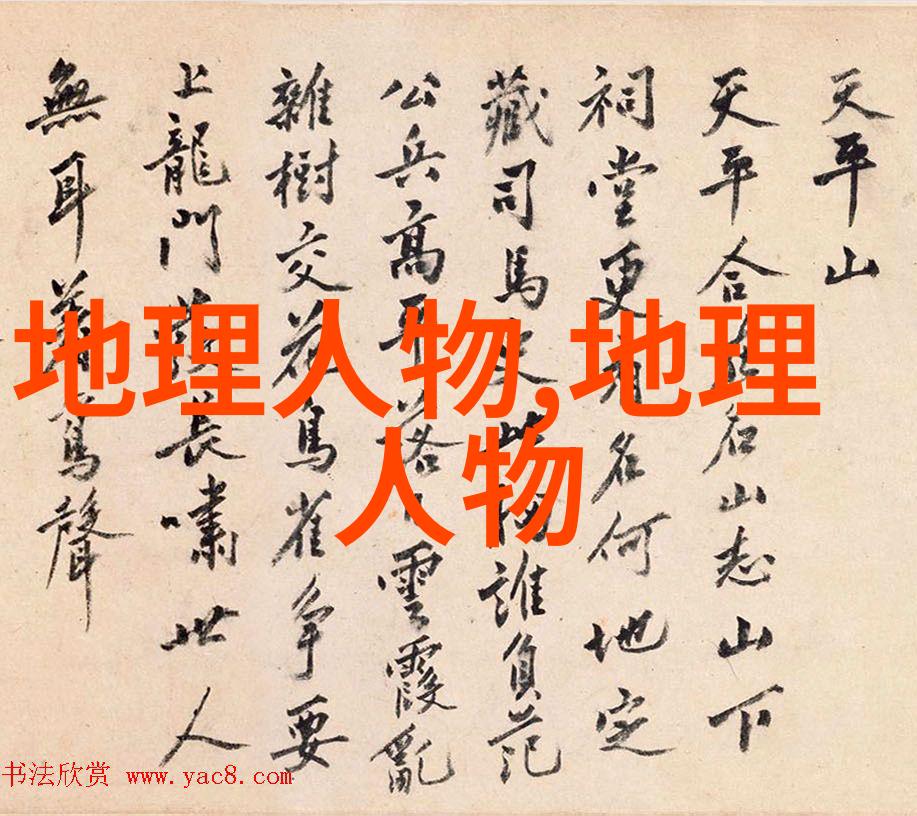 天平山
天平合名山志山下
祠堂更有名何地定
藏司馬史誰負范
公兵高平落雲霞亂
雜樹交花鳥雀爭要
上龍門長嘯世人
無耳聲
地理人物,地理
人物
书法欣赏 www.yac8.com